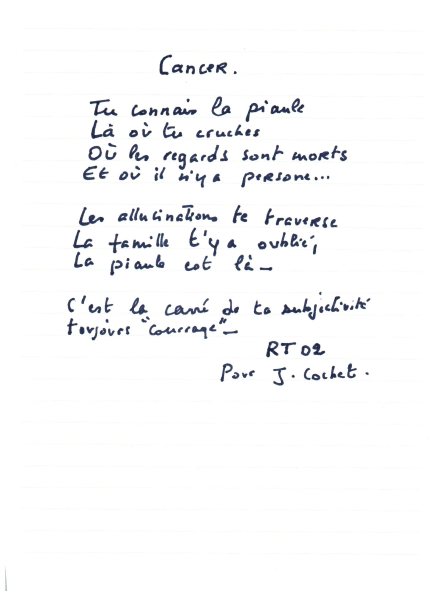 Cancer.
Tu connais la piaule
Là où tu cruches
Où les regards sont morts
Et où il n'y a persone...
Les allucinations te traverse
La famille t'y a oublié,
La piaule est là -
C'est la carré de ta subjectivité
toujours "courrage" -
RT 02
Pour J. Cochet.